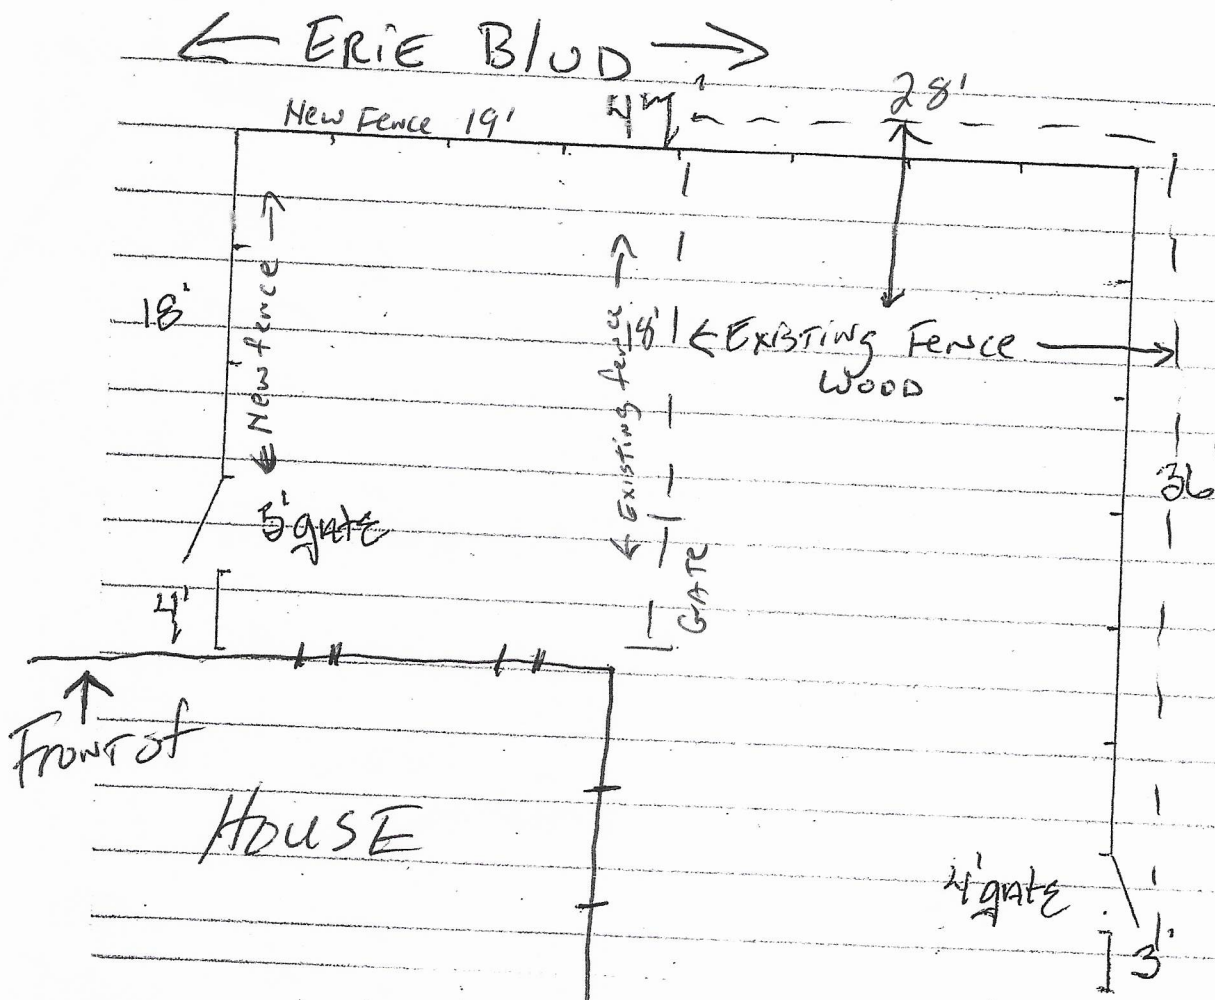 ← ERIE BLVD →
New Fence 19'
28'
← New fence →
18'
← Existing fence →
18'
← EXISTING FENCE →
WOOD
36
5' gate
GATE
4'
FRONT of
HOUSE
4' gate
3'